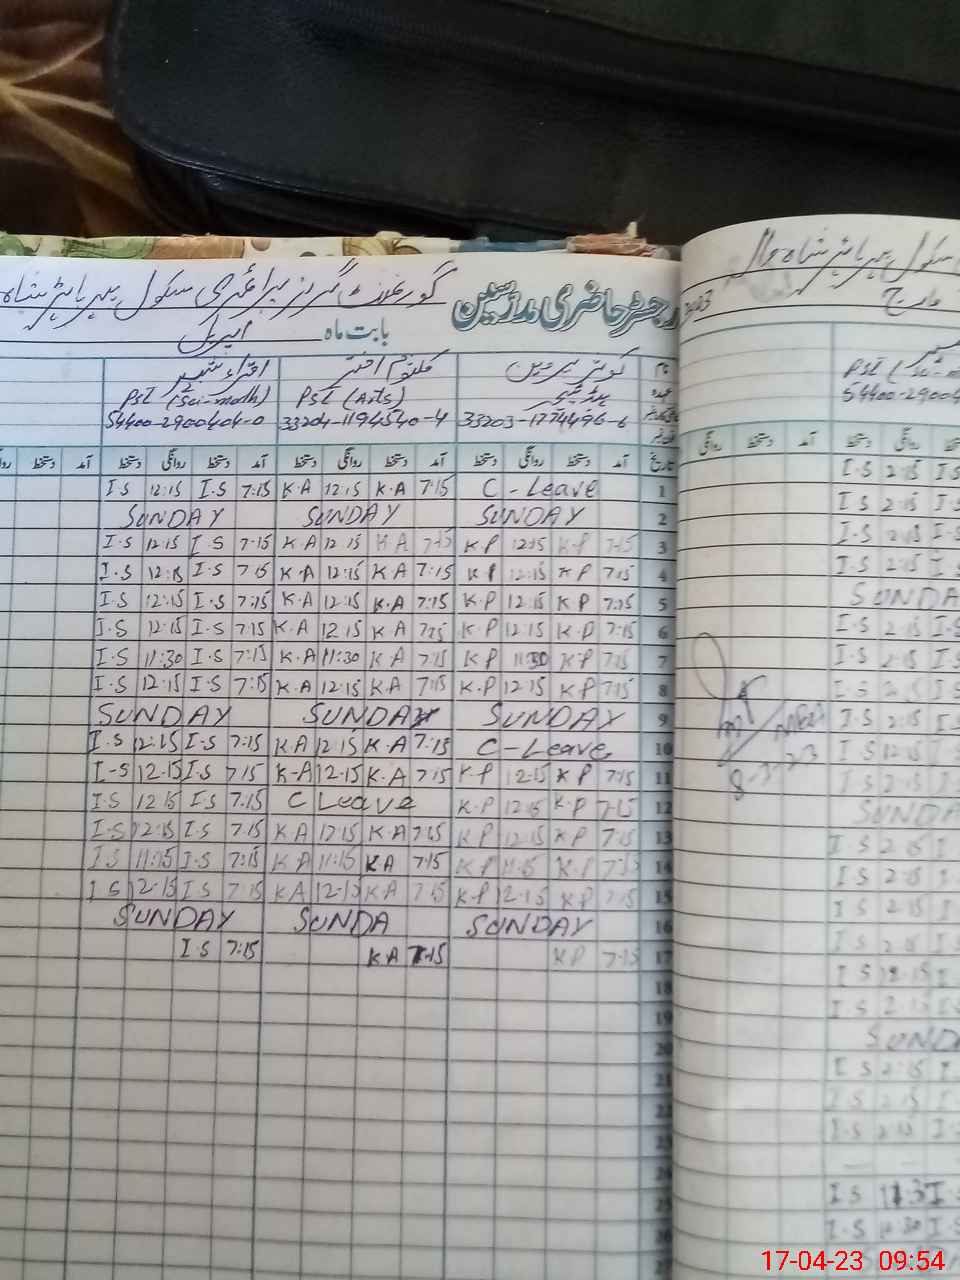 گورنمنٹ گرلز پرائمری سکول
رجسٹر حاضری مدرسین
بابت ماہ اپریل
نام کوثر پروین کلثوم اختر اقراء شبیر
عہدہ PST (Arts) PST (Sci-math)
33203-1774496-6 33204-1194540-4 54400-2900404-0
تاریخ آمد دستخط روانگی دستخط آمد دستخط روانگی دستخط آمد دستخط روانگی دستخط آمد دستخط
I.S 12:15 I.S 7:15 K.A 12:15 K.A 7:15 C-Leave 1
SUNDAY SUNDAY SUNDAY 2
I.S 12:15 I.S 7:15 K.A 12:15 K A 7:15 K.P 12:15 K.P 7:15 3
I.S 12:15 I.S 7:15 K.A 12:15 K A 7:15 K.P 12:15 K.P 7:15 4
I.S 12:15 I.S 7:15 K.A 12:15 K.A 7:15 K.P 12:15 K.P 7:15 5
I.S 12:15 I.S 7:15 K.A 12:15 K A 7:15 K.P 12:15 K.P 7:15 6
I.S 11:30 I.S 7:15 K.A 11:30 K A 7:15 K.P 11:30 K.P 7:15 7
I.S 12:15 I.S 7:15 K.A 12:15 K.A 7:15 K.P 12:15 K.P 7:15 8
SUNDAY SUNDAY SUNDAY 9
I.S 12:15 I.S 7:15 K.A 12:15 K.A 7:15 C-Leave 10
I-S 12:15 I.S 7:15 K-A 12:15 K.A 7:15 K.P 12:15 K.P 7:15 11
I.S 12:15 I.S 7:15 C Leave K.P 12:15 K.P 7:15 12
I.S 12:15 I.S 7:15 K.A 12:15 K.A 7:15 K.P 12:15 K.P 7:15 13
I S 11:15 I.S 7:15 K A 11:15 KA 7:15 K.P 11:15 K.P 7:15 14
I S 12:15 I S 7:15 K A 12:15 K A 7:15 K.P 12:15 K.P 7:15 15
SUNDAY SUNDA SUNDAY 16
I.S 7:15 K A 7:15 K P 7:15 17
18
19
20
21
22
23
24
25
26
مارچ
54400-29004
دستخط روانگی دستخط آمد
I.S 2:15 I.S
I S 2:15 I-S
I.S 2:15 I-S
I.S 2:15 I.S
SUNDA
I.S 2:15 I.S
I.S 2:15 I.S
I.S 2:15 I.S
I.S 2:15 I.S
I S 12:15 I.S
I S 2:15 I.S
SUNDA
I S 2:15 I
I S 2:15 I
I.S 2:15 I
I S 2:15 I
I S 12:15 I
I S 2:15 I
SUND
I S 2:15 I.
I.S 2:15 I
I.S 2:15 I.
I S I.S
I.S 11:30 I.S
8-3-23
17-04-23 09:54